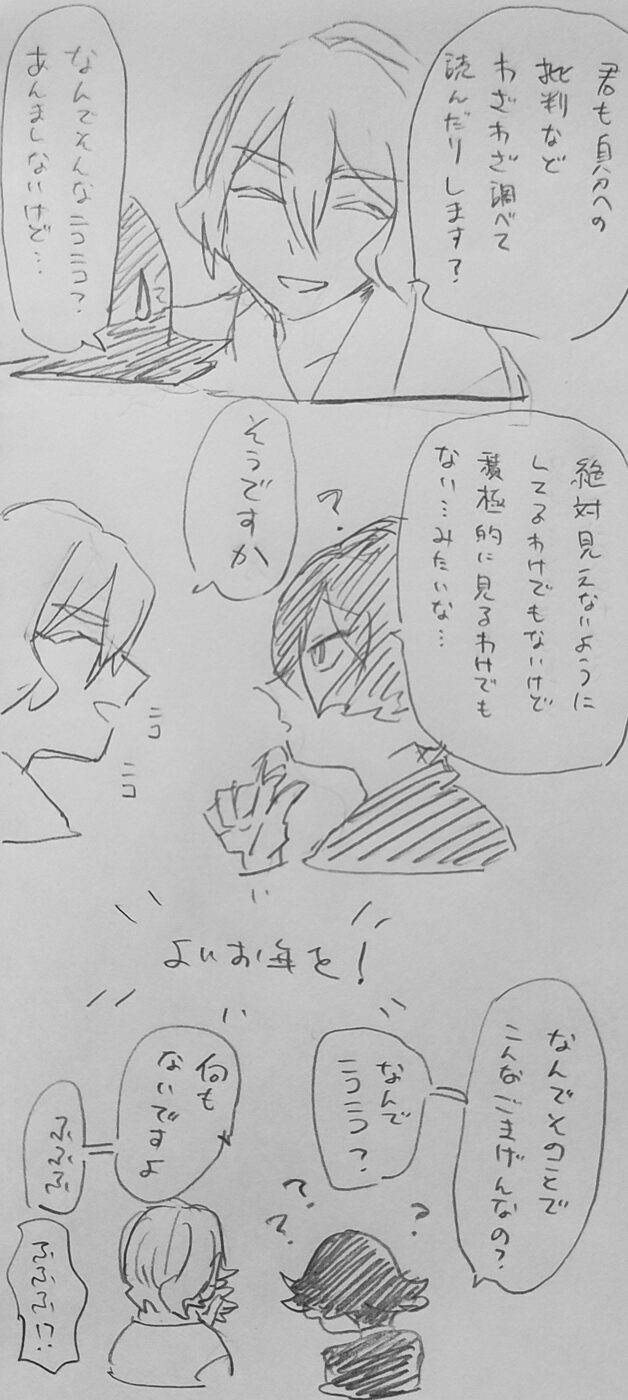 君も自分への
批判など
わざわざ調べて
読んだりします？
なんでそんなニコニコ？
あんましないけど…
絶対見えないように
してるわけでもないけど
積極的に見るわけでも
ない…みたいな…
？
そうですか
ニコ
ニコ
よいお年を！
なんでそのことで
こんなごきげんなの？
なんで
ニコニコ？
何も
ないですよ
ふふふ
？
？
？